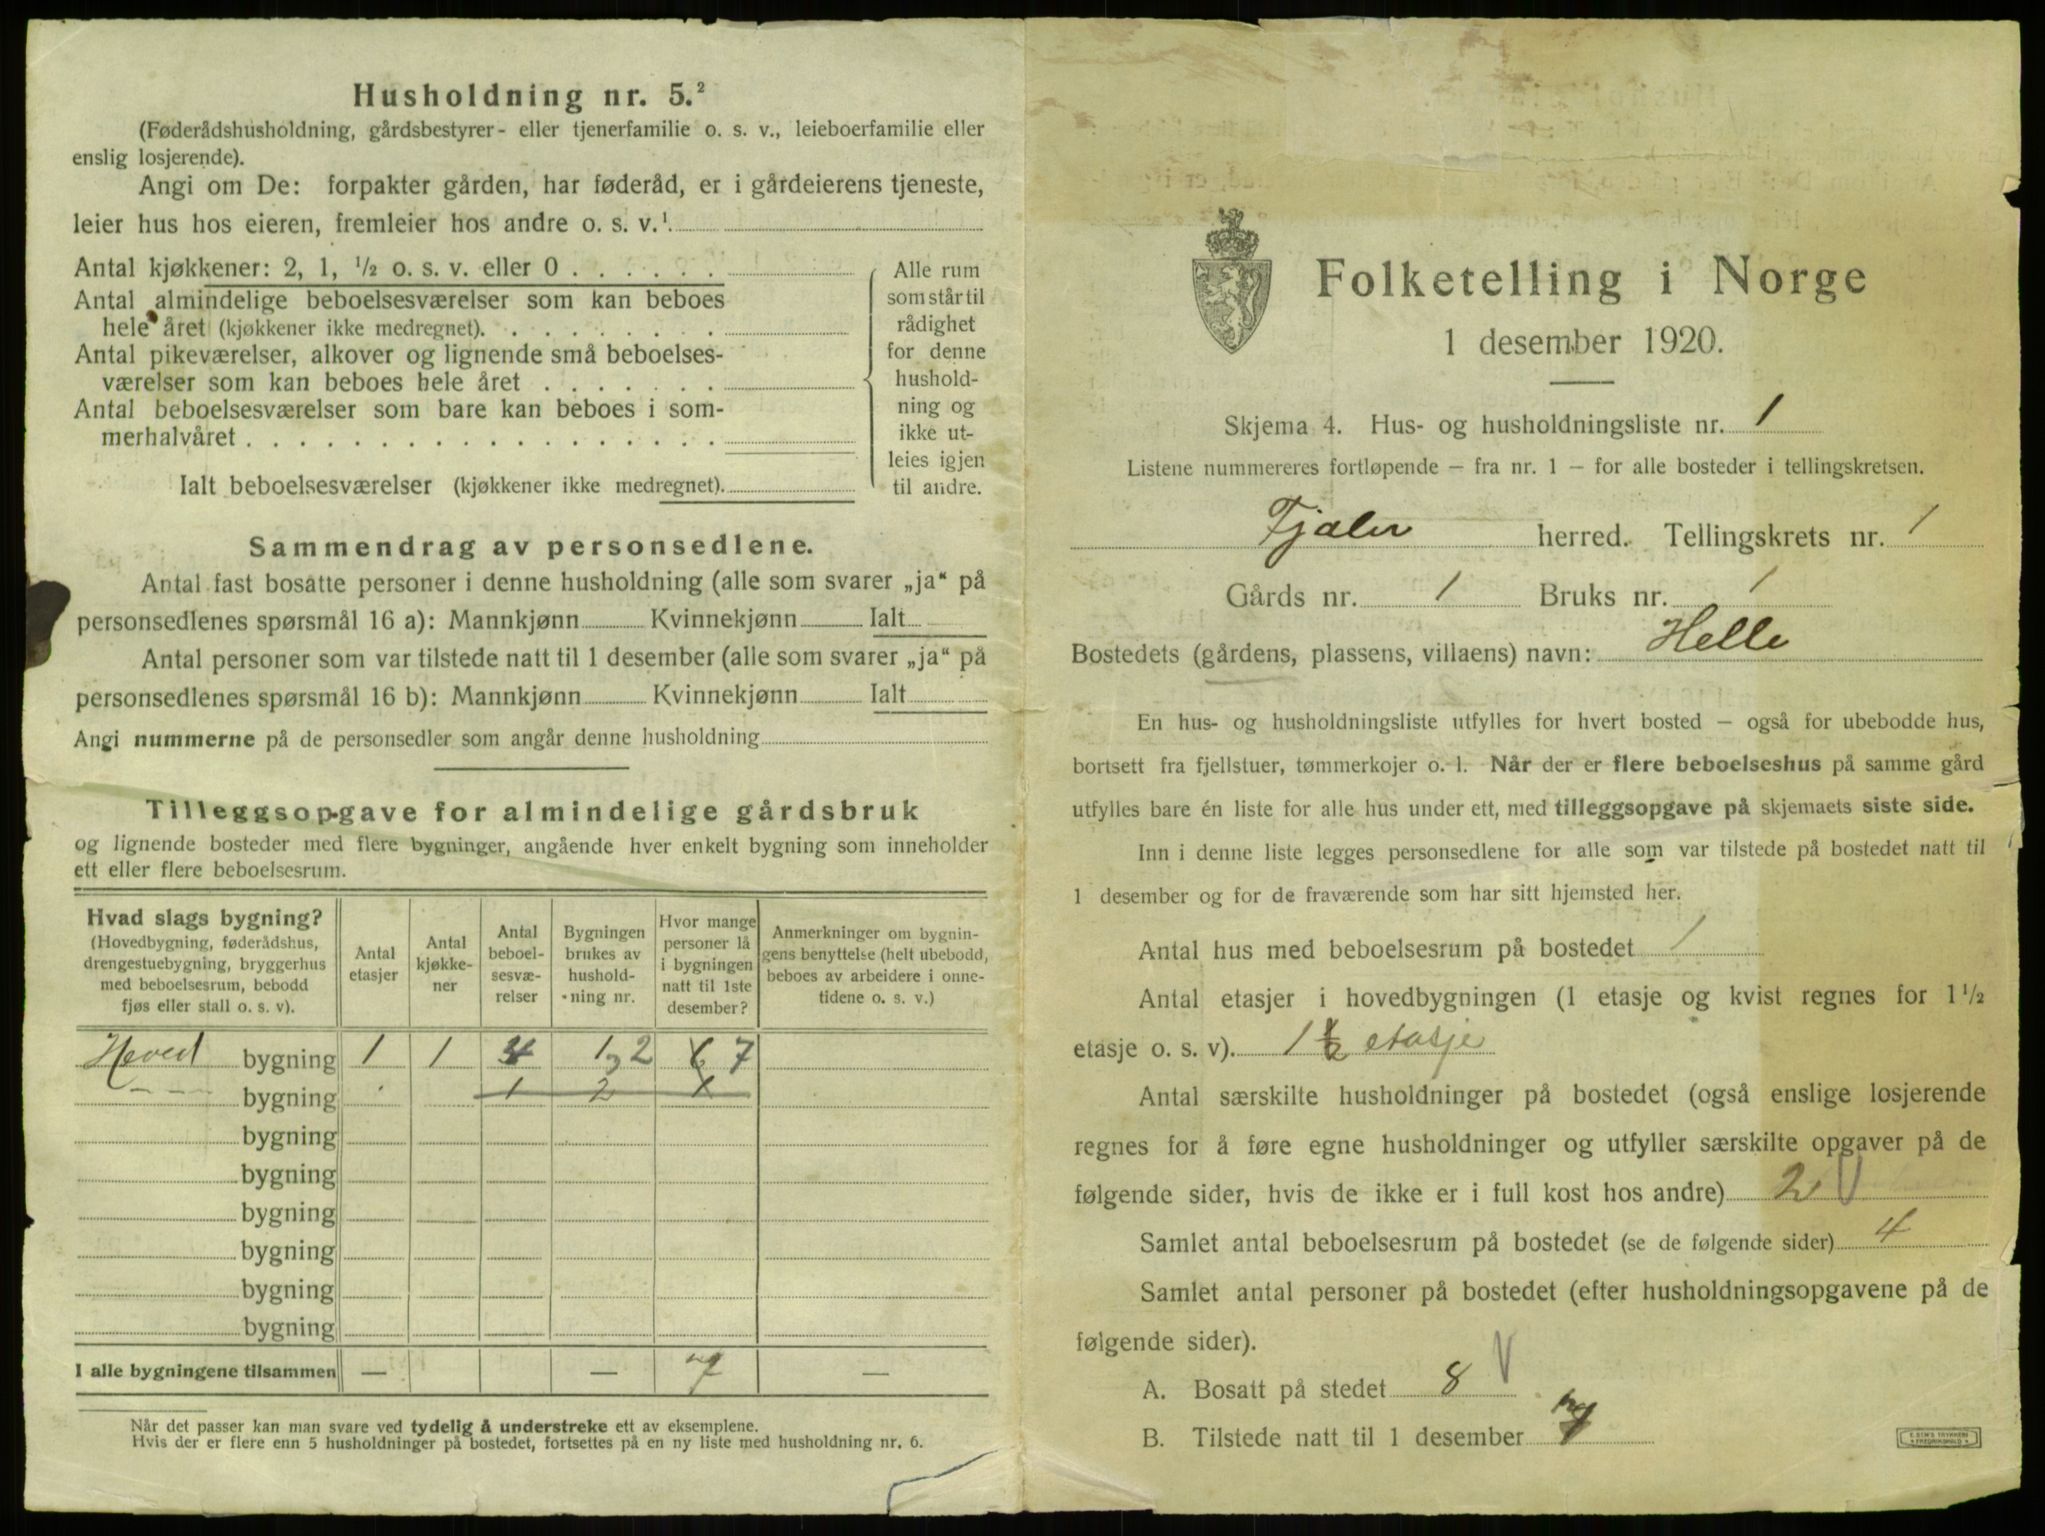 Husholdning nr. 5.²
(Føderådshusholdning, gårdsbestyrer- eller tjenerfamilie o. s. v., leieboerfamilie eller
enslig losjerende).
Angi om De: forpakter gården, har føderåd, er i gårdeierens tjeneste,
leier hus hos eieren, fremleier hos andre o. s. v.¹
Antal kjøkkener: 2, 1, ½ o. s. v. eller 0 . . . . . .
Antal almindelige beboelsesværelser som kan beboes
hele året (kjøkkener ikke medregnet). . . . . . . . .
Antal pikeværelser, alkover og lignende små beboelses-
værelser som kan beboes hele året . . . . . . .
Antal beboelsesværelser som bare kan beboes i som-
merhalvåret . . . . . . . . . . . . . . . . . .
Ialt beboelsesværelser (kjøkkener ikke medregnet).
Alle rum
som står til
rådighet
for denne
hushold-
ning og
ikke ut-
leies igjen
til andre.
Sammendrag av personsedlene.
Antal fast bosatte personer i denne husholdning (alle som svarer „ja“ på
personsedlenes spørsmål 16 a): Mannkjønn Kvinnekjønn Ialt
Antal personer som var tilstede natt til 1 desember (alle som svarer „ja“ på
personsedlenes spørsmål 16 b): Mannkjønn Kvinnekjønn Ialt
Angi nummerne på de personsedler som angår denne husholdning
Tilleggsopgave for almindelige gårdsbruk
og lignende bosteder med flere bygninger, angående hver enkelt bygning som inneholder
ett eller flere beboelsesrum.
Hvad slags bygning?
(Hovedbygning, føderådshus,
drengestuebygning, bryggerhus
med beboelsesrum, bebodd
fjøs eller stall o. s. v).
Antal
etasjer
Antal
kjøkke-
ner
Antal
beboel-
sesvæ-
relser
Bygningen
brukes av
hushold-
ning nr.
Hvor mange
personer lå
i bygningen
natt til 1ste
desember?
Anmerkninger om bygnin-
gens benyttelse (helt ubebodd,
beboes av arbeidere i onne-
tidene o. s. v.)
Hoved bygning 1 1 4 1,2 6 7
— — — bygning 1 2 1
bygning
bygning
bygning
bygning
bygning
bygning
I alle bygningene tilsammen — — 7 —
Når det passer kan man svare ved tydelig å understreke ett av eksemplene.
Hvis der er flere enn 5 husholdninger på bostedet, fortsettes på en ny liste med husholdning nr. 6.
Folketelling i Norge
1 desember 1920.
Skjema 4. Hus- og husholdningsliste nr. 1
Listene nummereres fortløpende – fra nr. 1 – for alle bosteder i tellingskretsen.
Fjaler herred. Tellingskrets nr. 1
Gårds nr. 1 Bruks nr. 1
Bostedets (gårdens, plassens, villaens) navn: Helle
En hus- og husholdningsliste utfylles for hvert bosted – også for ubebodde hus,
bortsett fra fjellstuer, tømmerkojer o. l. Når der er flere beboelseshus på samme gård
utfylles bare én liste for alle hus under ett, med tilleggsopgave på skjemaets siste side.
Inn i denne liste legges personsedlene for alle som var tilstede på bostedet natt til
1 desember og for de fraværende som har sitt hjemsted her.
Antal hus med beboelsesrum på bostedet 1
Antal etasjer i hovedbygningen (1 etasje og kvist regnes for 1½
etasje o. s. v). 1 ½ etasje
Antal særskilte husholdninger på bostedet (også enslige losjerende
regnes for å føre egne husholdninger og utfyller særskilte opgaver på de
følgende sider, hvis de ikke er i full kost hos andre) 2 V
Samlet antal beboelsesrum på bostedet (se de følgende sider) 4
Samlet antal personer på bostedet (efter husholdningsopgavene på de
følgende sider).
A. Bosatt på stedet 8 V
B. Tilstede natt til 1 desember 7